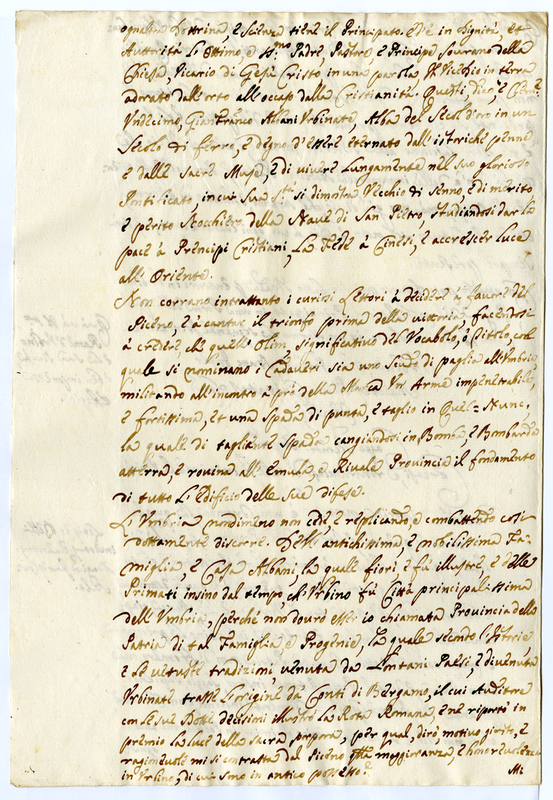 ogn'altra Dottrina, e Scienza tiene il Principato. Ed è in Dignità, et
Auttorità L'Ottimo, e SS.mo Padre, Pastore, e Principe Sourano della
Chiesa, Vicario di Gesù Cristo in una parola Il Vecchio in terra
adorato dall'orto all'occaso dalla Cristianità. Questi, dico, è Clem.e
Vndecimo, Gianfranco Albani Vrbinate, Alba del Secol d'oro in un
Secolo di ferro, e degno d'essere eternato dall'istoriche penne
e dalle Sacre Muse, e di vivere Lungamente nel suo glorioso
Pontificato, in cui Sua S.tà si dimostra Vecchio di Senno, e di merito
e perito Nocchiero della Naue di San Pietro, studiandosi dar la
pace à Principi Cristiani, La Fede à Cinesi, e accrescer Luce
all'Oriente.
Non corrano intrattanto i curiosi Lettori à decidere à fauore del
Piceno, e à cantar il trionfo prima della vittoria, facendosi
à credere, che quell'Olim significativo del Vocabolo, ò titolo, col
quale si nominano i Cadaueri sia uno Scudo di paglia all'Vmbria,
militando all'incontro à prò della Marca Vn' Arme impenetrabile,
e fortissima, et una Spada di punta, e taglio in Quel = Nunc,
la quale di tagliente Spada cangiandosi in Bomba, e Bombarda
atterra, e rovina all'Emula, e Rivale Provincia il fondamento
di tutto L'Edificio delle Sue difese.
L'Vmbria nondimeno non cede, e replicando, e combattendo così
dottamente discorre. Dell'antichissima, e nobilissima Fa-
miglia, e Casa Albani, la quale fiorì e fù illustre, e delle
Primati insino dal tempo, ch'Vrbino fù Città principalissima
dell'Vmbria, perché non dourò esser io chiamata Provincia dello
Patria di tal Famiglia, e Progenie, la quale secondo l'Istorie
e le vetuste tradizioni, venuta da Lontani Paesi, e divenuta
Vrbinate trasse l'origine da Conti di Bergamo, il cui Auditore
con le sue Dotte decisioni illustrò La Rota Romana, e ne riportò in
premio La Luce della Sacra porpora, per qual, dirò, motivo giusto, e
ragioneuole mi si contrasta dal Piceno q.sta maggioranza, e honoreuolezza
in Vrbino, di cui sono in antico possesso?
Mi